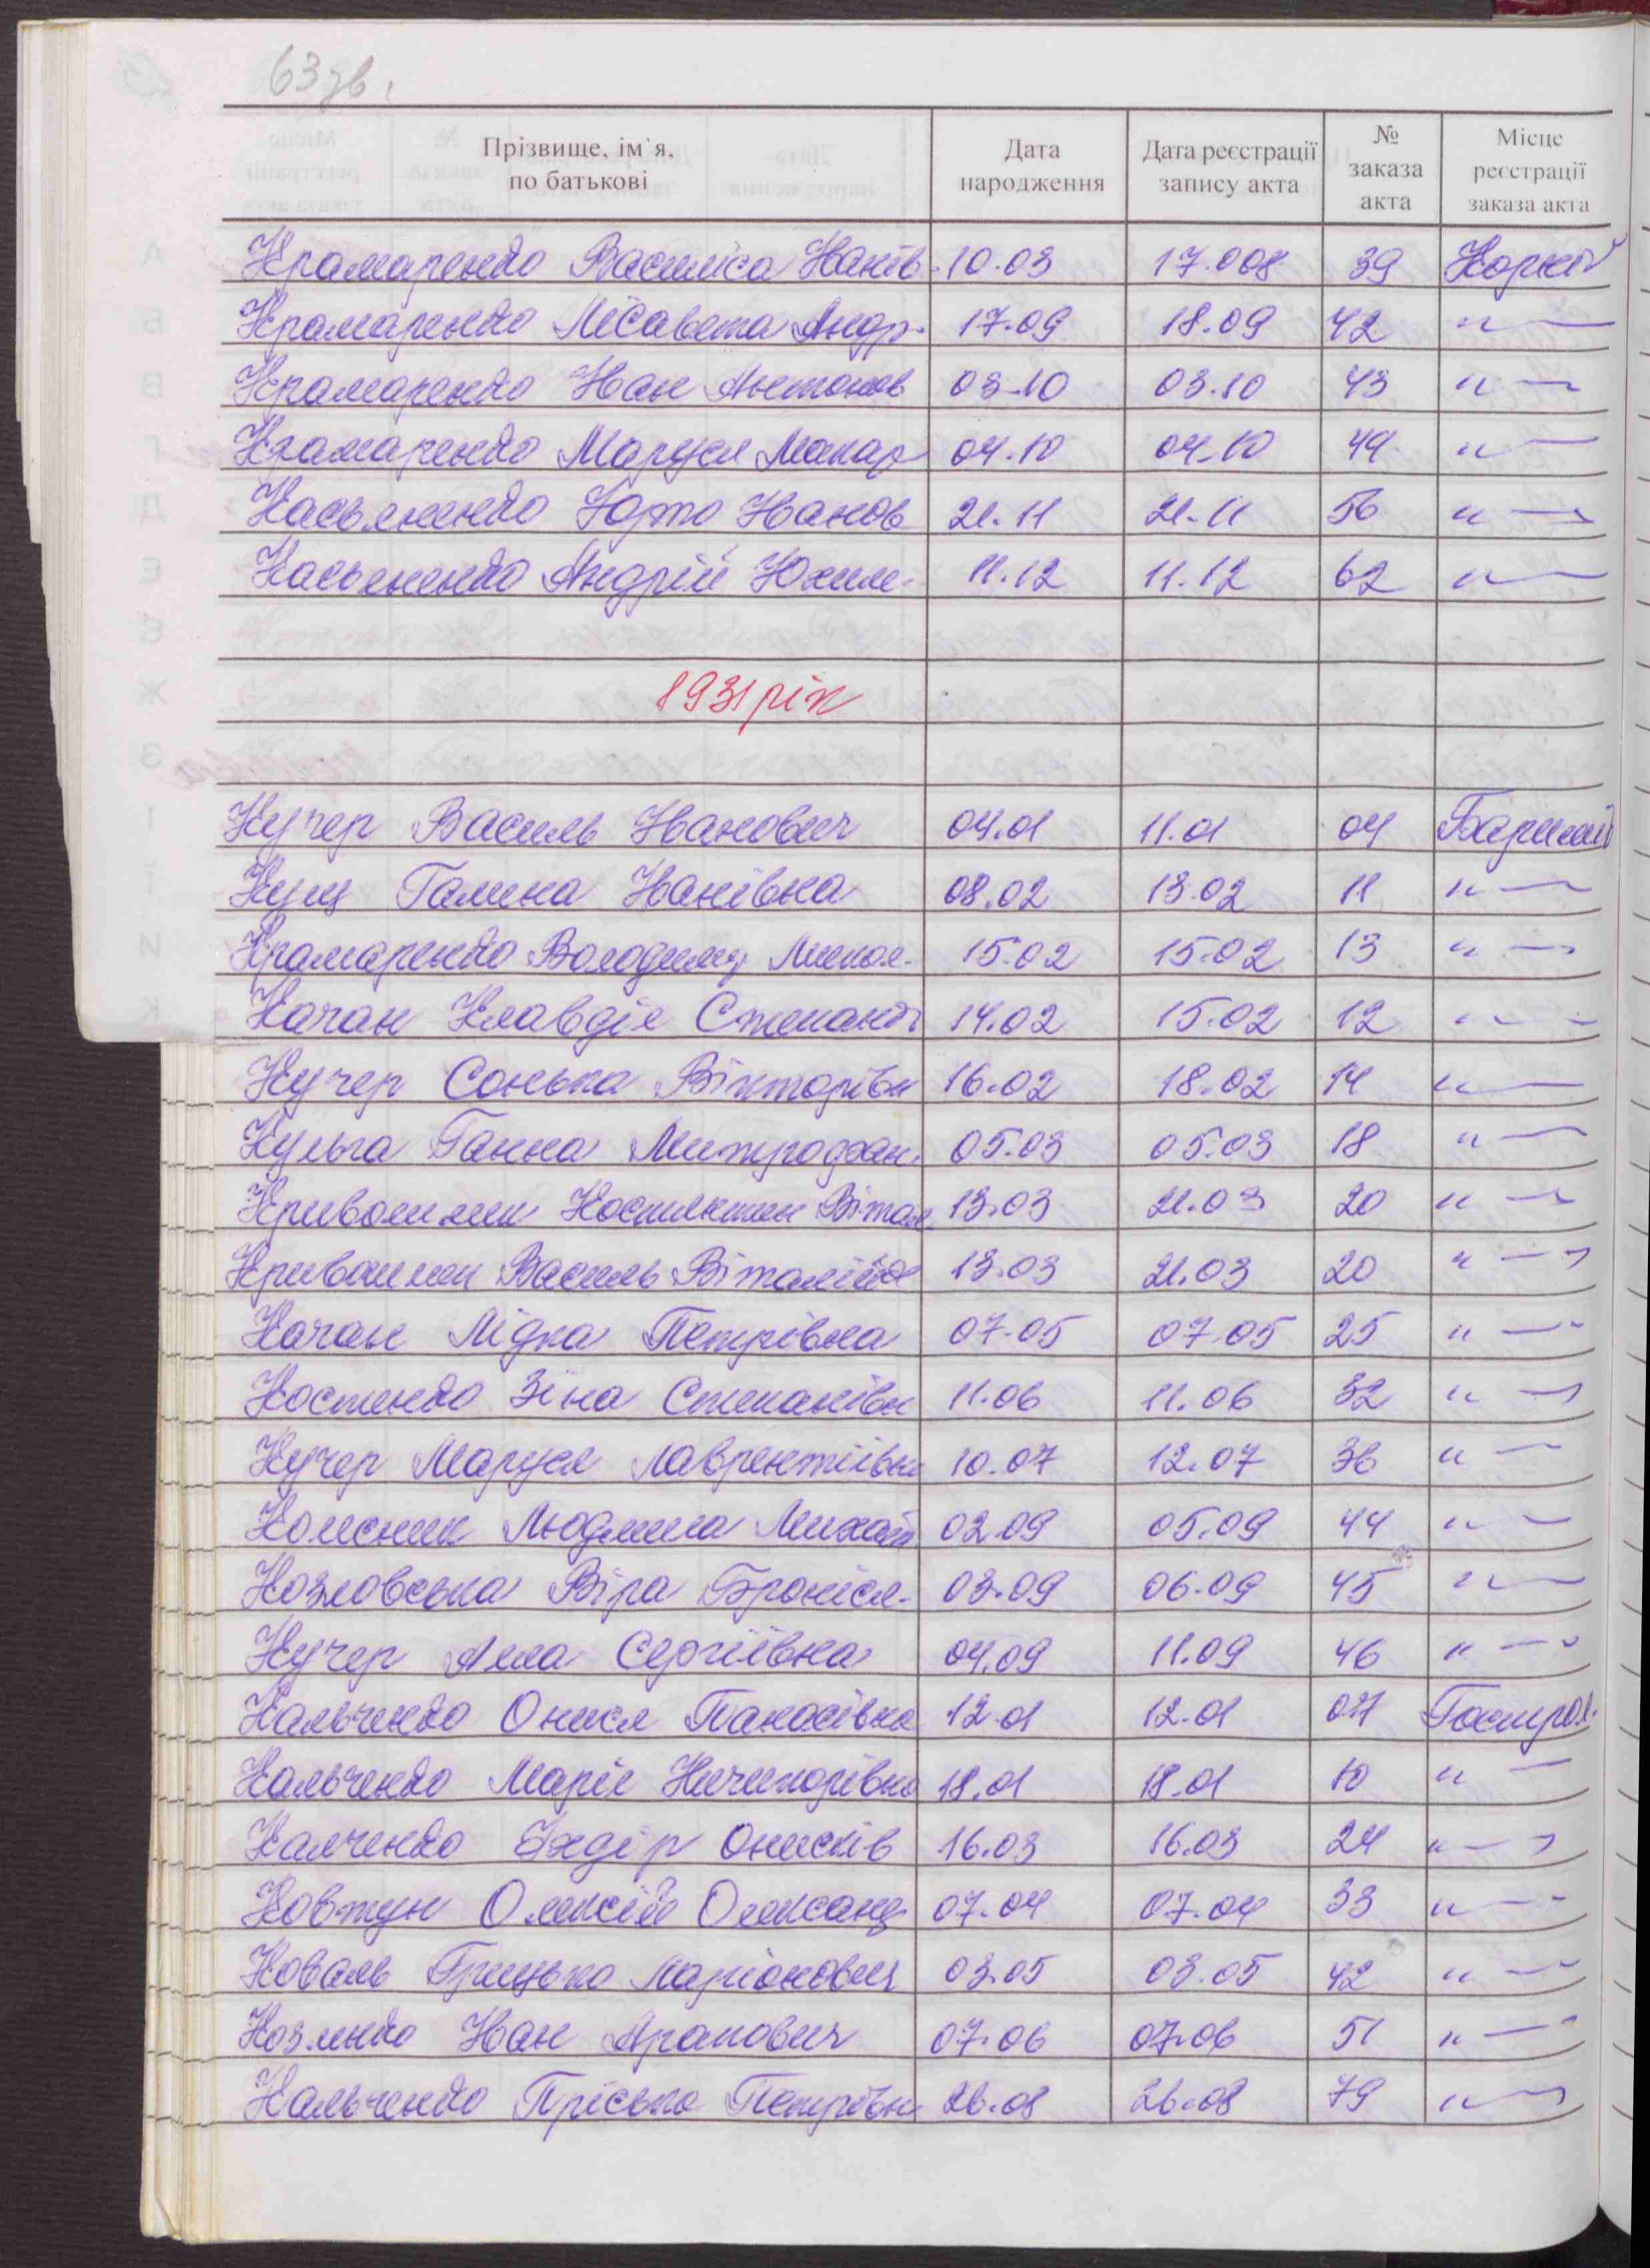 63 зв.
Прізвище, ім`я, по батькові | Дата народження | Дата реєстрації запису акта | № заказа акта | Місце реєстрації заказа акта
Крамаренко Василіса Іванів. 10.03 17.008 39
Крамаренко Лісавета Андр. 17.09 18.09 42 -"-
Крамаренко Іван Антонов 03.10 03.10 43 -"-
Крамаренко Маруся Макар 04.10 04.10 49 -"-
Касьяненко Іванов 21.11 21.11 56 -"-
Касьяненко Андрій Юхим. 11.12 11.12 62 -"-
1931 рік
Кучер Василь Іванович 04.01 11.01 04
Кущ Галина Іванівна 08.02 13.02 11 -"-
Крамаренко Володимир Микол. 15.02 15.02 13 -"-
Качан Клавдія Степанів 14.02 15.02 12 -"-
Кучер Сонька Вікторівн 16.02 18.02 14 -"-
Кульга Ганна Митрофан. 05.03 05.03 18 -"-
Кривошлик Костянтин Вітал. 13.03 21.03 20 -"-
Кривошлик Василь Віталійов 13.03 21.03 20 -"-
Качан Лідка Петрівна 07.05 07.05 25 -"-
Костенко Зіна Степанівн 11.06 11.06 32 -"-
Кучер Маруся Лаврентіївна 10.07 12.07 36 -"-
Колесник Людмила Михайл 02.09 05.09 44 -"-
Козловська Віра Броніся. 03.09 06.09 45 -"-
Кучер Алла Сергіївна 04.09 11.09 46 -"-
Кальченко Онися Панасівна 12.01 12.01 07
Кальченко Марія Ничипорівна 18.01 18.01 10 -"-
Калченко Хведір Онисків 16.03 16.03 24 -"-
Ковтун Олексій Олександ. 07.04 07.04 33 -"-
Коваль Грицько Ларіонович 03.05 03.05 42 -"-
Козленко Іван Арапович 07.06 07.06 51 -"-
Кальченко Пріська Петрівн 26.08 26.08 79 -"-